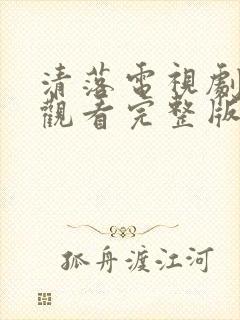 清落電視劇
觀看完整版
孤舟渡江河